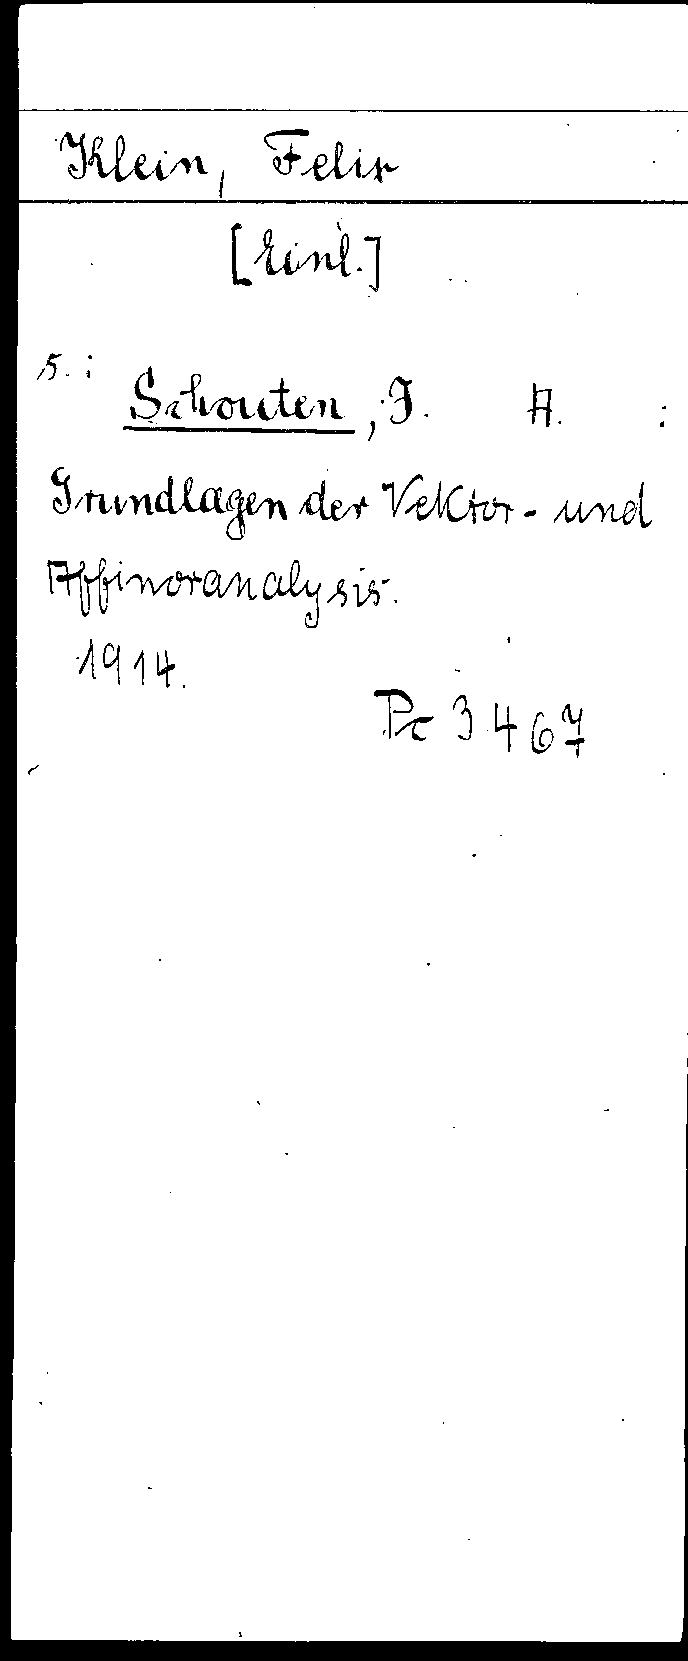 Klein, Felix
[Einl.]
s.:
Schouten, J. A. :
Grundlagen der Vektor- und
Affinoranalysis.
1914.
Pc 3467